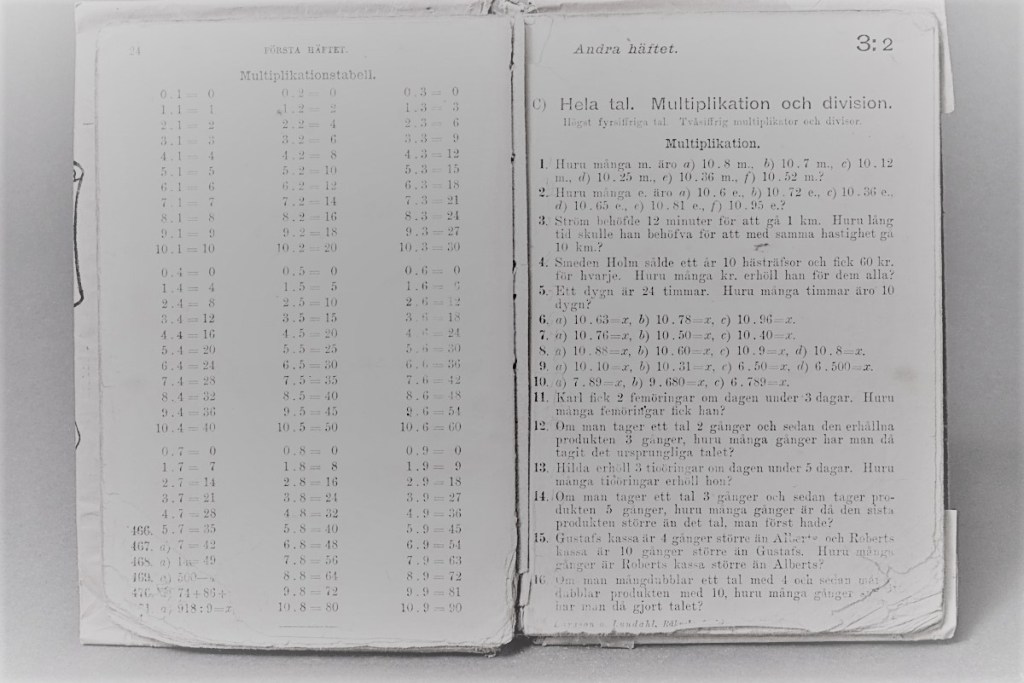 24 FÖRSTA HÄFTET.
Multiplikationstabell.
0.1 = 0 0.2 = 0 0.3 = 0
1.1 = 1 1.2 = 2 1.3 = 3
2.1 = 2 2.2 = 4 2.3 = 6
3.1 = 3 3.2 = 6 3.3 = 9
4.1 = 4 4.2 = 8 4.3 = 12
5.1 = 5 5.2 = 10 5.3 = 15
6.1 = 6 6.2 = 12 6.3 = 18
7.1 = 7 7.2 = 14 7.3 = 21
8.1 = 8 8.2 = 16 8.3 = 24
9.1 = 9 9.2 = 18 9.3 = 27
10.1 = 10 10.2 = 20 10.3 = 30
0.4 = 0 0.5 = 0 0.6 = 0
1.4 = 4 1.5 = 5 1.6 = 6
2.4 = 8 2.5 = 10 2.6 = 12
3.4 = 12 3.5 = 15 3.6 = 18
4.4 = 16 4.5 = 20 4.6 = 24
5.4 = 20 5.5 = 25 5.6 = 30
6.4 = 24 6.5 = 30 6.6 = 36
7.4 = 28 7.5 = 35 7.6 = 42
8.4 = 32 8.5 = 40 8.6 = 48
9.4 = 36 9.5 = 45 9.6 = 54
10.4 = 40 10.5 = 50 10.6 = 60
0.7 = 0 0.8 = 0 0.9 = 0
1.7 = 7 1.8 = 8 1.9 = 9
2.7 = 14 2.8 = 16 2.9 = 18
3.7 = 21 3.8 = 24 3.9 = 27
4.7 = 28 4.8 = 32 4.9 = 36
466. 5.7 = 35 5.8 = 40 5.9 = 45
467. a) 7 = 42 6.8 = 48 6.9 = 54
468. = 49 7.8 = 56 7.9 = 63
469. a) 500 8.8 = 64 8.9 = 72
470. 74+86+ 9.8 = 72 9.9 = 81
a) 918:9=x; 10.8 = 80 10.9 = 90
Andra häftet. 3: 2
C) Hela tal. Multiplikation och division.
Högst fyrsiffriga tal. Tvåsiffrig multiplikator och divisor.
Multiplikation.
1. Huru många m. äro a) 10.8 m., b) 10.7 m., c) 10.12
m., d) 10.25 m., e) 10.36 m., f) 10.52 m.?
2. Huru många e. äro a) 10.6 e., b) 10.72 e., c) 10.36 e.,
d) 10.65 e., e) 10.81 e., f) 10.95 e.?
3. Ström behöfde 12 minuter för att gå 1 km. Huru lång
tid skulle han behöfva för att med samma hastighet gå
10 km.?
4. Smeden Holm sålde ett år 10 hästräfsor och fick 60 kr.
för hvarje. Huru många kr. erhöll han för dem alla?
5. Ett dygn är 24 timmar. Huru många timmar äro 10
dygn?
6. a) 10.63=x, b) 10.78=x, c) 10.96=x.
7. a) 10.76=x, b) 10.50=x, c) 10.40=x.
8. a) 10.88=x, b) 10.60=x, c) 10.9=x, d) 10.8=x.
9. a) 10.10=x, b) 10.31=x, c) 6.50=x, d) 6.500=x.
10. a) 7.89=x, b) 9.680=x, c) 6.789=x.
11. Karl fick 2 femöringar om dagen under 3 dagar. Huru
många femöringar fick han?
12. Om man tager ett tal 2 gånger och sedan den erhållna
produkten 3 gånger, huru många gånger har man då
tagit det ursprungliga talet?
13. Hilda erhöll 3 tioöringar om dagen under 5 dagar. Huru
många tioöringar erhöll hon?
14. Om man tager ett tal 3 gånger och sedan tager pro-
dukten 5 gånger, huru många gånger är då den sista
produkten större än det tal, man först hade?
15. Gustafs kassa är 4 gånger större än Alberts och Roberts
kassa är 10 gånger större än Gustafs. Huru många
gånger är Roberts kassa större än Alberts?
16 Om man mångdubblar ett tal med 4 och sedan
dubblar produkten med 10, huru många gånger
har man då gjort talet?